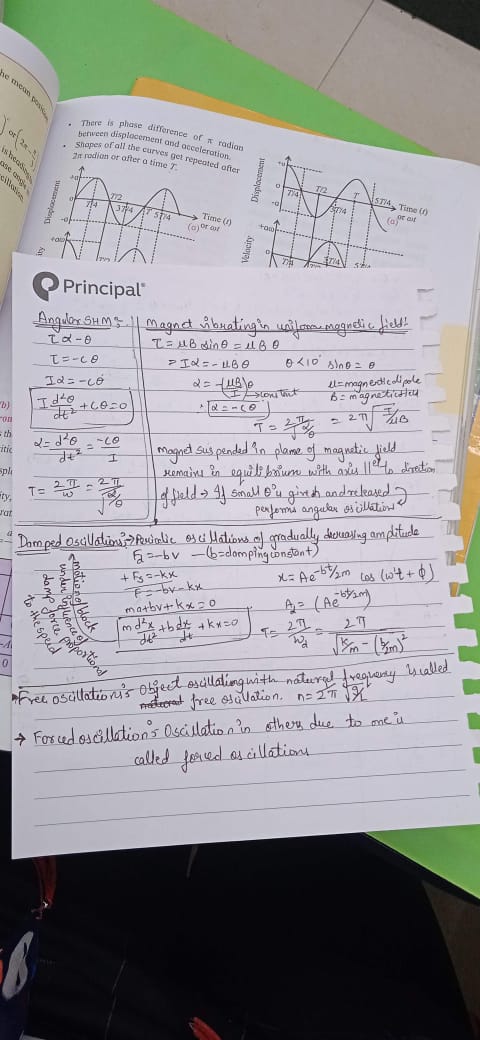 he mean position
or (2π -
is heading
ase angle
cillation
• There is phase difference of π radian
between displacement and acceleration.
• Shapes of all the curves get repeated after
2π radian or after a time T.
Displacement
+a
0
-a
T/4
T/2
3T/4
T
5T/4
Time (t)
(a) or ωt
+aω
Displacement
+a
0
-a
T/4
T/2
3T/4
T
5T/4
Time (t)
(a) or ωt
Velocity
+aω
0
T/4
3T/4
Principal®
Angular SHM:
τ α -θ
τ = -cθ
Iα = -cθ
I d²θ/dt² + cθ = 0
α = d²θ/dt² = -cθ/I
T = 2π/ω = 2π/√α/θ
Magnet vibrating in uniform magnetic field:
τ = μB sinθ = μBθ
= Iα = -μBθ θ<10° sinθ = θ
α = -(μB/I)θ → constant μ = magnetic dipole
B = magnetic field
∴ α = -cθ
T = 2π/√α/θ = 2π√I/μB
magnet suspended in plane of magnetic field
remains in equilibrium with axis 11el to direction
of field → If small θ is given and released
performs angular oscillation
Damped Oscillations:→ Periodic oscillations of gradually decreasing amplitude
F₂ = -bv — (b = damping constant)
+ Fs = -kx
F = -bv - kx
ma + bv + kx = 0
m d²x/dt² + b dx/dt + kx = 0
x = Ae^-bt/2m cos (ω't + φ)
A₂ = (Ae^-bt/2m)
T = 2π/ω₂ = 2π/√k/m - (b/2m)²
under influence of
damp force proportional
to the speed
→ Free oscillation: Object oscillating with natural frequency is called
free oscillation.
→ Forced oscillation: Oscillation in others due to one is
called forced oscillations